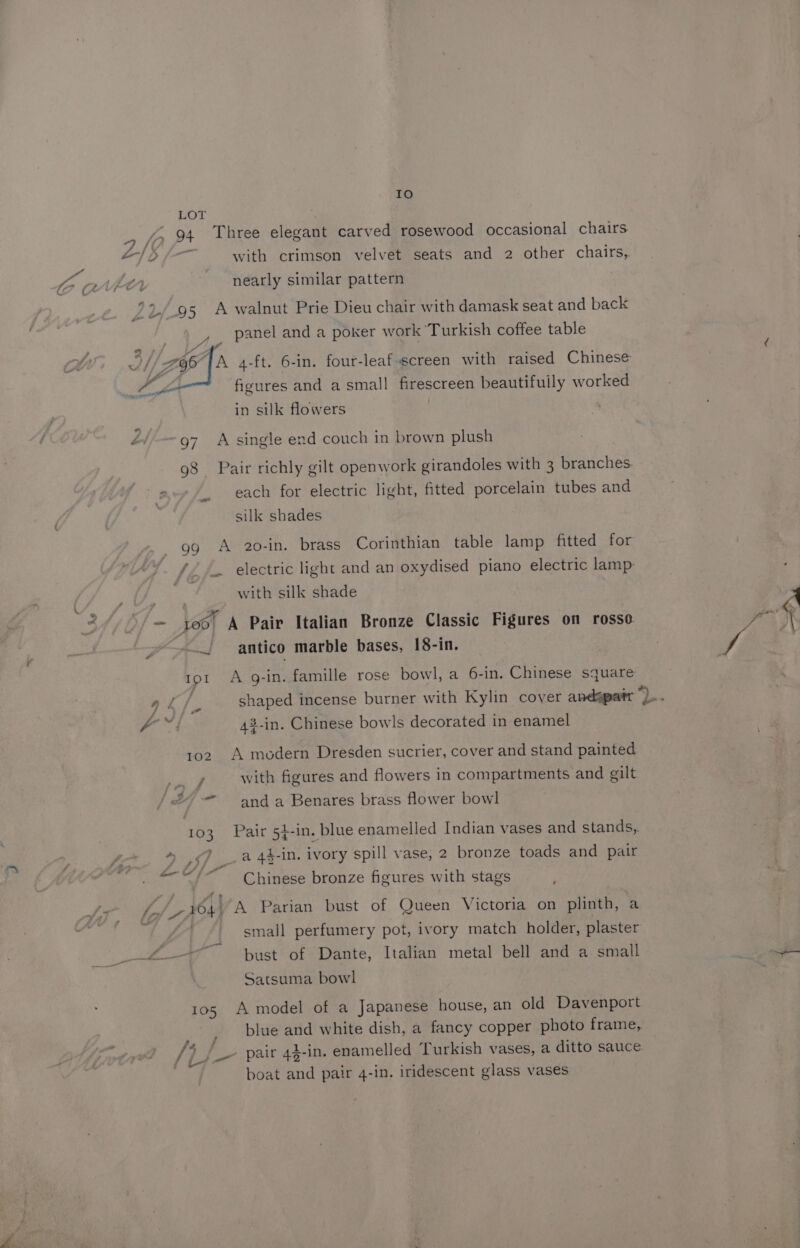 10
LOT
94 Three elegant carved rosewood occasional chairs
with crimson velvet seats and 2 other chairs,
nearly similar pattern
95 A walnut Prie Dieu chair with damask seat and back
panel and a poker work Turkish coffee table
96 A 4-ft. 6-in. four-leaf screen with raised Chinese
figures and a small firescreen beautifully worked
in silk flowers
97 A single end couch in brown plush
98 Pair richly gilt openwork girandoles with 3 branches
each for electric light, fitted porcelain tubes and
silk shades
99 A 20-in. brass Corinthian table lamp fitted for
electric light and an oxydised piano electric lamp
with silk shade
100 A Pair Italian Bronze Classic Figures on rosso
antico marble bases, 18-in.
101 A 9-in. famille rose bowl, a 6-in. Chinese square
shaped incense burner with Kylin cover and pair
4¾-in. Chinese bowls decorated in enamel
102 A modern Dresden sucrier, cover and stand painted
with figures and flowers in compartments and gilt
and a Benares brass flower bowl
103 Pair 5½-in. blue enamelled Indian vases and stands,
a 4½-in. ivory spill vase, 2 bronze toads and pair
Chinese bronze figures with stags
104 A Parian bust of Queen Victoria on plinth, a
small perfumery pot, ivory match holder, plaster
bust of Dante, Italian metal bell and a small
Satsuma bowl
105 A model of a Japanese house, an old Davenport
blue and white dish, a fancy copper photo frame,
pair 4½-in. enamelled Turkish vases, a ditto sauce
boat and pair 4-in. iridescent glass vases